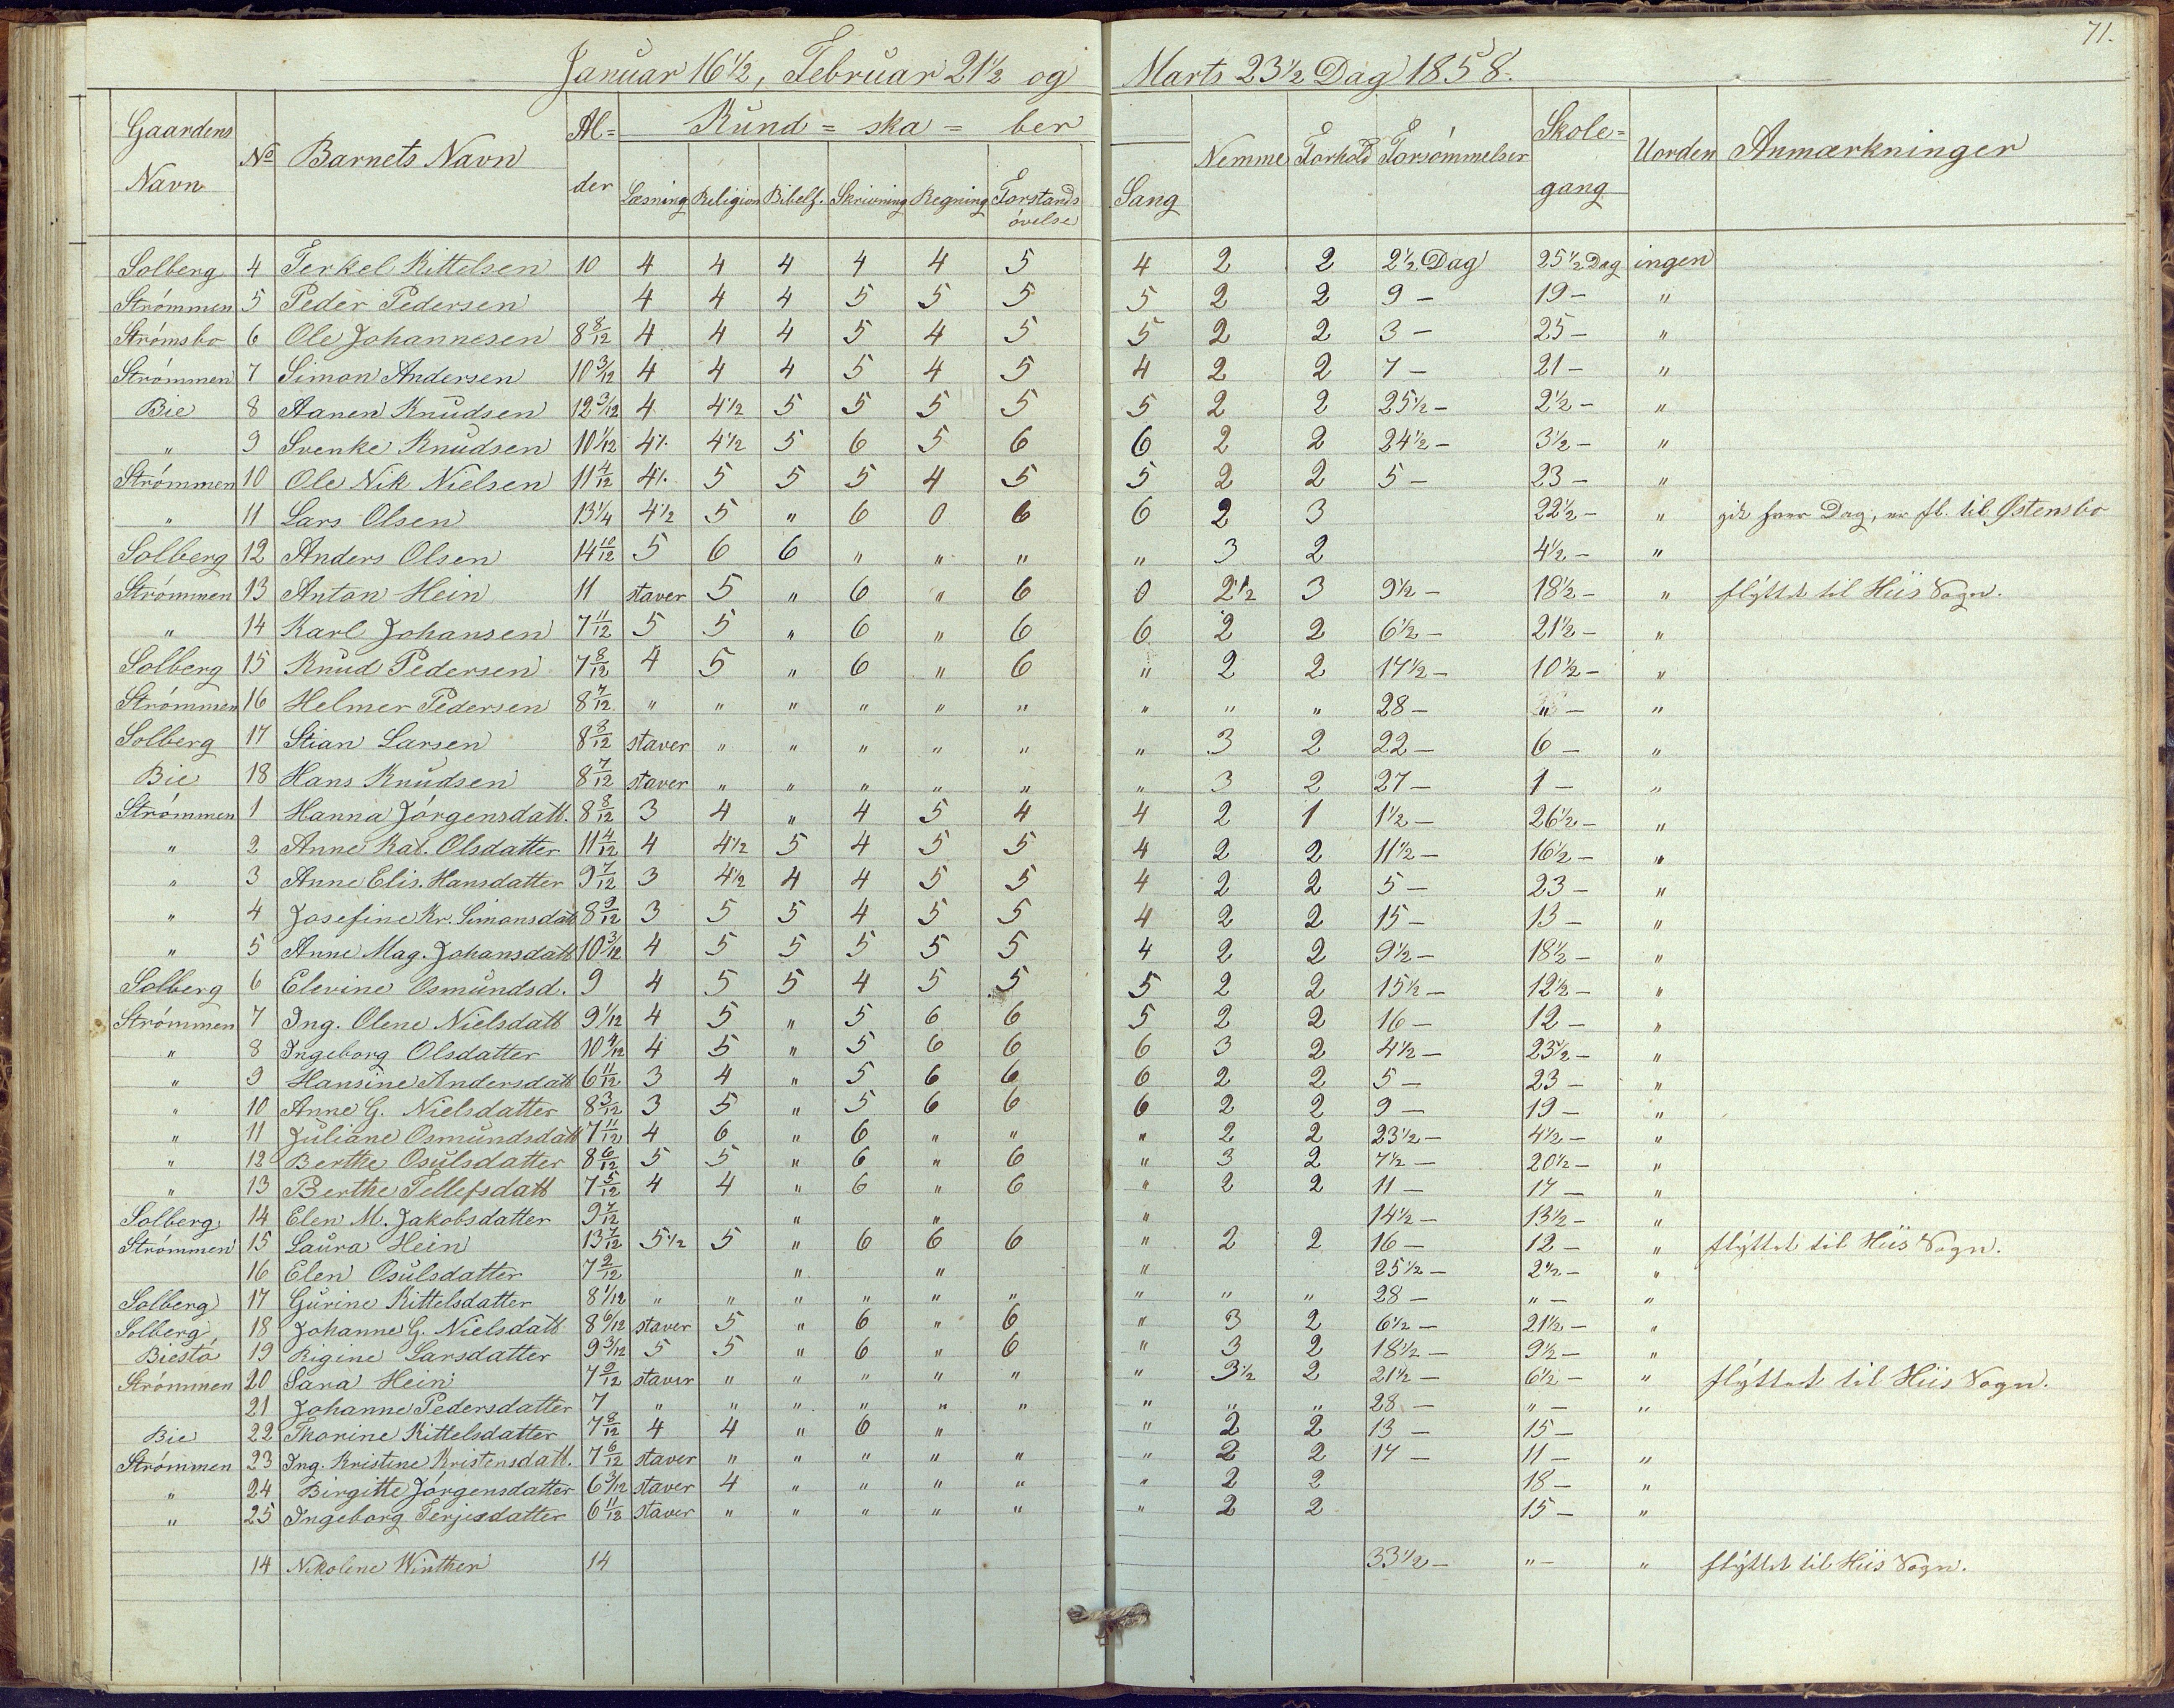 71.
Januar 16½, Februar 21½ og Marts 23½ Dag 1858.
Gaardens Navn | No | Barnets Navn | Al=der | Kund=ska=ber | Nemme | Forhold | Forsømmelser | Skole=gang | Uorden | Anmærkninger
Læsning | Religion | Bibelf. | Skrivning | Regning | Forstands øvelse | Sang
Solberg 4 Terkel Kittelsen 10 4 4 4 4 4 5 4 2 2 2½ Dag 25½ Dag ingen
Strømmen 5 Peder Pedersen 4 4 4 5 5 5 5 2 2 9 - 19 - "
Strømsbo 6 Ole Johannesen 8 8/12 4 4 4 5 4 5 5 2 2 3 - 25 - "
Strømmen 7 Simon Andersen 10 3/12 4 4 4 5 4 5 4 2 2 7 - 21 - "
Bie 8 Aanen Knudsen 12 3/12 4 4½ 5 5 5 5 5 2 2 25½ - 2½ - "
" 9 Svenke Knudsen 10 1/12 4½ 4½ 5 6 5 6 6 2 2 24½ - 3½ - "
Strømmen 10 Ole Nik Nielsen 11 4/12 4½ 5 5 5 4 5 5 2 2 5 - 23 - "
" 11 Lars Olsen 13¼ 4½ 5 " 6 0 6 6 2 3 22½ - " gik hver Dag, er fl. til Østensbo
Solberg 12 Anders Olsen 14 10/12 5 6 6 " " " " 3 2 4½ - "
Strømmen 13 Anton Hein 11 staver 5 " 6 " 6 0 2½ 3 9½ - 18½ - " flyttet til Hiis Sogn.
" 14 Karl Johansen 7 11/12 5 5 " 6 " 6 6 2 2 6½ - 21½ - "
Solberg 15 Knud Pedersen 7 8/12 4 5 " 6 " 6 " 2 2 17½ - 10½ - "
Strømmen 16 Helmer Pedersen 8 7/12 " " " " " " " " " 28 - " - "
Solberg 17 Stian Larsen 8 8/12 staver " " " " " " 3 2 22 - 6 - "
Bie 18 Hans Knudsen 8 7/12 staver " " " " " " 3 2 27 - 1 - "
Strømmen 1 Hanna Jørgensdatt. 8 8/12 3 4 " 4 5 4 4 2 1 1½ - 26½ - "
" 2 Anne Kat. Olsdatter 11 4/12 4 4½ 5 4 5 5 4 2 2 11½ - 16½ - "
" 3 Anne Elis. Hansdatter 9 7/12 3 4½ 4 4 5 5 4 2 2 5 - 23 - "
" 4 Josefine Kr. Simonsdat 8 9/12 3 5 5 4 5 5 4 2 2 15 - 13 - "
" 5 Anne Mag. Johansdatt 10 3/12 4 5 5 5 5 5 4 2 2 9½ - 18½ - "
Solberg 6 Elevine Osmundsd. 9 4 5 5 4 5 5 5 2 2 15½ - 12½ - "
Strømmen 7 Ing. Olene Nielsdatt 9 1/12 4 5 " 5 6 6 5 2 2 16 - 12 - "
" 8 Ingeborg Olsdatter 10 4/12 4 5 " 5 6 6 6 3 2 4½ - 23½ - "
" 9 Hansine Andersdatt 6 11/12 3 4 " 5 6 6 6 2 2 5 - 23 - "
" 10 Anne G. Nielsdatter 8 3/12 3 5 " 5 6 6 6 2 2 9 - 19 - "
" 11 Juliane Osmundsdatt 7 11/12 4 6 " 6 " " " 2 2 23½ - 4½ - "
" 12 Berthe Osulsdatter 8 6/12 5 5 " 6 " 6 " 3 2 7½ - 20½ - "
" 13 Berthe Tellefsdatt 7 5/12 4 4 " 6 " 6 " 2 2 11 - 17 - "
Solberg 14 Elen M. Jakobsdatter 9 7/12 " " " 14½ - 13½ - "
Strømmen 15 Laura Hein 13 7/12 5½ 5 " 6 6 6 " 2 2 16 - 12 - " flyttet til Hiis Sogn.
16 Elen Osulsdatter 7 2/12 " " " 25½ - 2½ - "
Solberg 17 Gurine Kittelsdatter 8 1/12 " " " " " " " " " 28 - " - "
Solberg, 18 Johanne G. Nielsdatt 8 6/12 staver 5 " 6 " 6 " 3 2 6½ - 21½ - "
Biestø 19 Rigine Larsdatter 9 3/12 5 5 " 6 " 6 " 3 2 18½ - 9½ - "
Strømmen 20 Sara Hein 7 9/12 staver " " " " " " 3½ 2 21½ - 6½ - " flyttet til Hiis Sogn.
21 Johanne Pedersdatter 7 " " " " " " " " " 28 - " - "
Bie 22 Thorine Kittelsdatter 7 8/12 4 4 " 6 " " 2 2 13 - 15 -
Strømmen 23 Ing. Kristine Kristensdatt. 7 6/12 staver " " " " " " 2 2 17 - 11 - "
" 24 Birgitte Jørgensdatter 6 3/12 staver 4 " " " " " 2 2 18 - "
" 25 Ingeborg Terjesdatter 6 11/12 staver " " " " " " 2 2 15 - "
14 Nikoline Winther 14 33½ - " - " flyttet til Hiis Sogn.